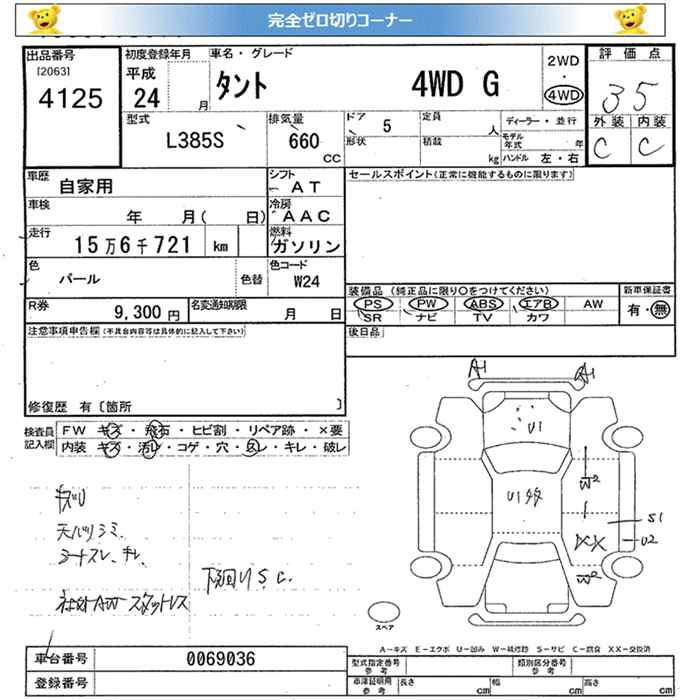 完全ゼロ切りコーナー
出品番号
[2063]
4125
初度登録年月
平成
24 月
車名・グレード
タント 4WD G
2WD
・
4WD
評価点
3.5
外装 内装
C C
型式
L385S
排気量
660
CC
ドア
5
形状
定員
人
積載
kg
ディーラー・並行
モデル年式 年
ハンドル 左・右
車歴
自家用
シフト
AT
車検
年 月( 日)
冷房
AAC
走行
15万6千721 km
燃料
ガソリン
色
パール
色替
色コード
W24
R券
9,300円
名変通知期限
月 日
注意事項申告欄(不具合内容等は具体的に記入して下さい)
修復歴 有〔箇所 〕
セールスポイント(正常に機能するものに限ります)
装備品(純正品に限り○をつけてください)
PS PW ABS エアB AW
SR ナビ TV カワ
新車保証書
有・無
後日品
検査員記入欄
FW キズ・飛石・ヒビ割・リペア跡・×要
内装 キズ・汚レ・コゲ・穴・スレ・キレ・破レ
キズU
天バリシミ、
シートスレ、キレ、
社外AW スタットレス
下回りS.C.
A1
A1
U1
U1多
W2
XX
W2
S1
U2
スペア
A-キズ E-エクボ U-凹み W-補修跡 S-サビ C-腐食 XX-交換済
車台番号
0069036
登録番号
型式指定番号
参考
類別区分番号
参考
車庫証明用
参考
長さ cm
幅 cm
高さ cm